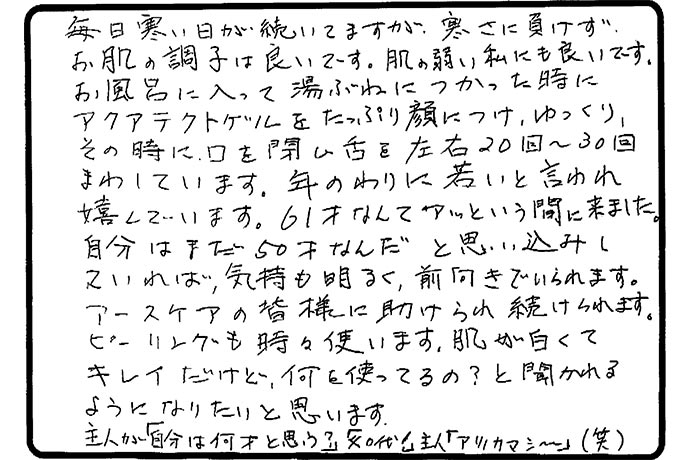 毎日寒い日が続いてますが、寒さに負けず、
お肌の調子は良いです。肌の弱い私にも良いです。
お風呂に入って湯ぶねにつかった時に
アクアテクトゲルをたっぷり顔につけ、ゆっくり、
その時に、口を閉い舌を左右20回〜30回
まわしています。年のわりに若いと言われ
嬉しいています。61才なんてアッという間に来ました。
自分はまだ50才なんだと思い込みし
ていれば、気持も明るく、前向きでいられます。
アースケアの皆様に助けられ続けられます。
ピーリングも時々使います。肌が白くて
キレイだけど、何を使ってるの?と聞かれる
ようになりたいと思います。
主人が「自分は何才と思う?」「50代!」主人「アリカマシ〜〜」(笑)